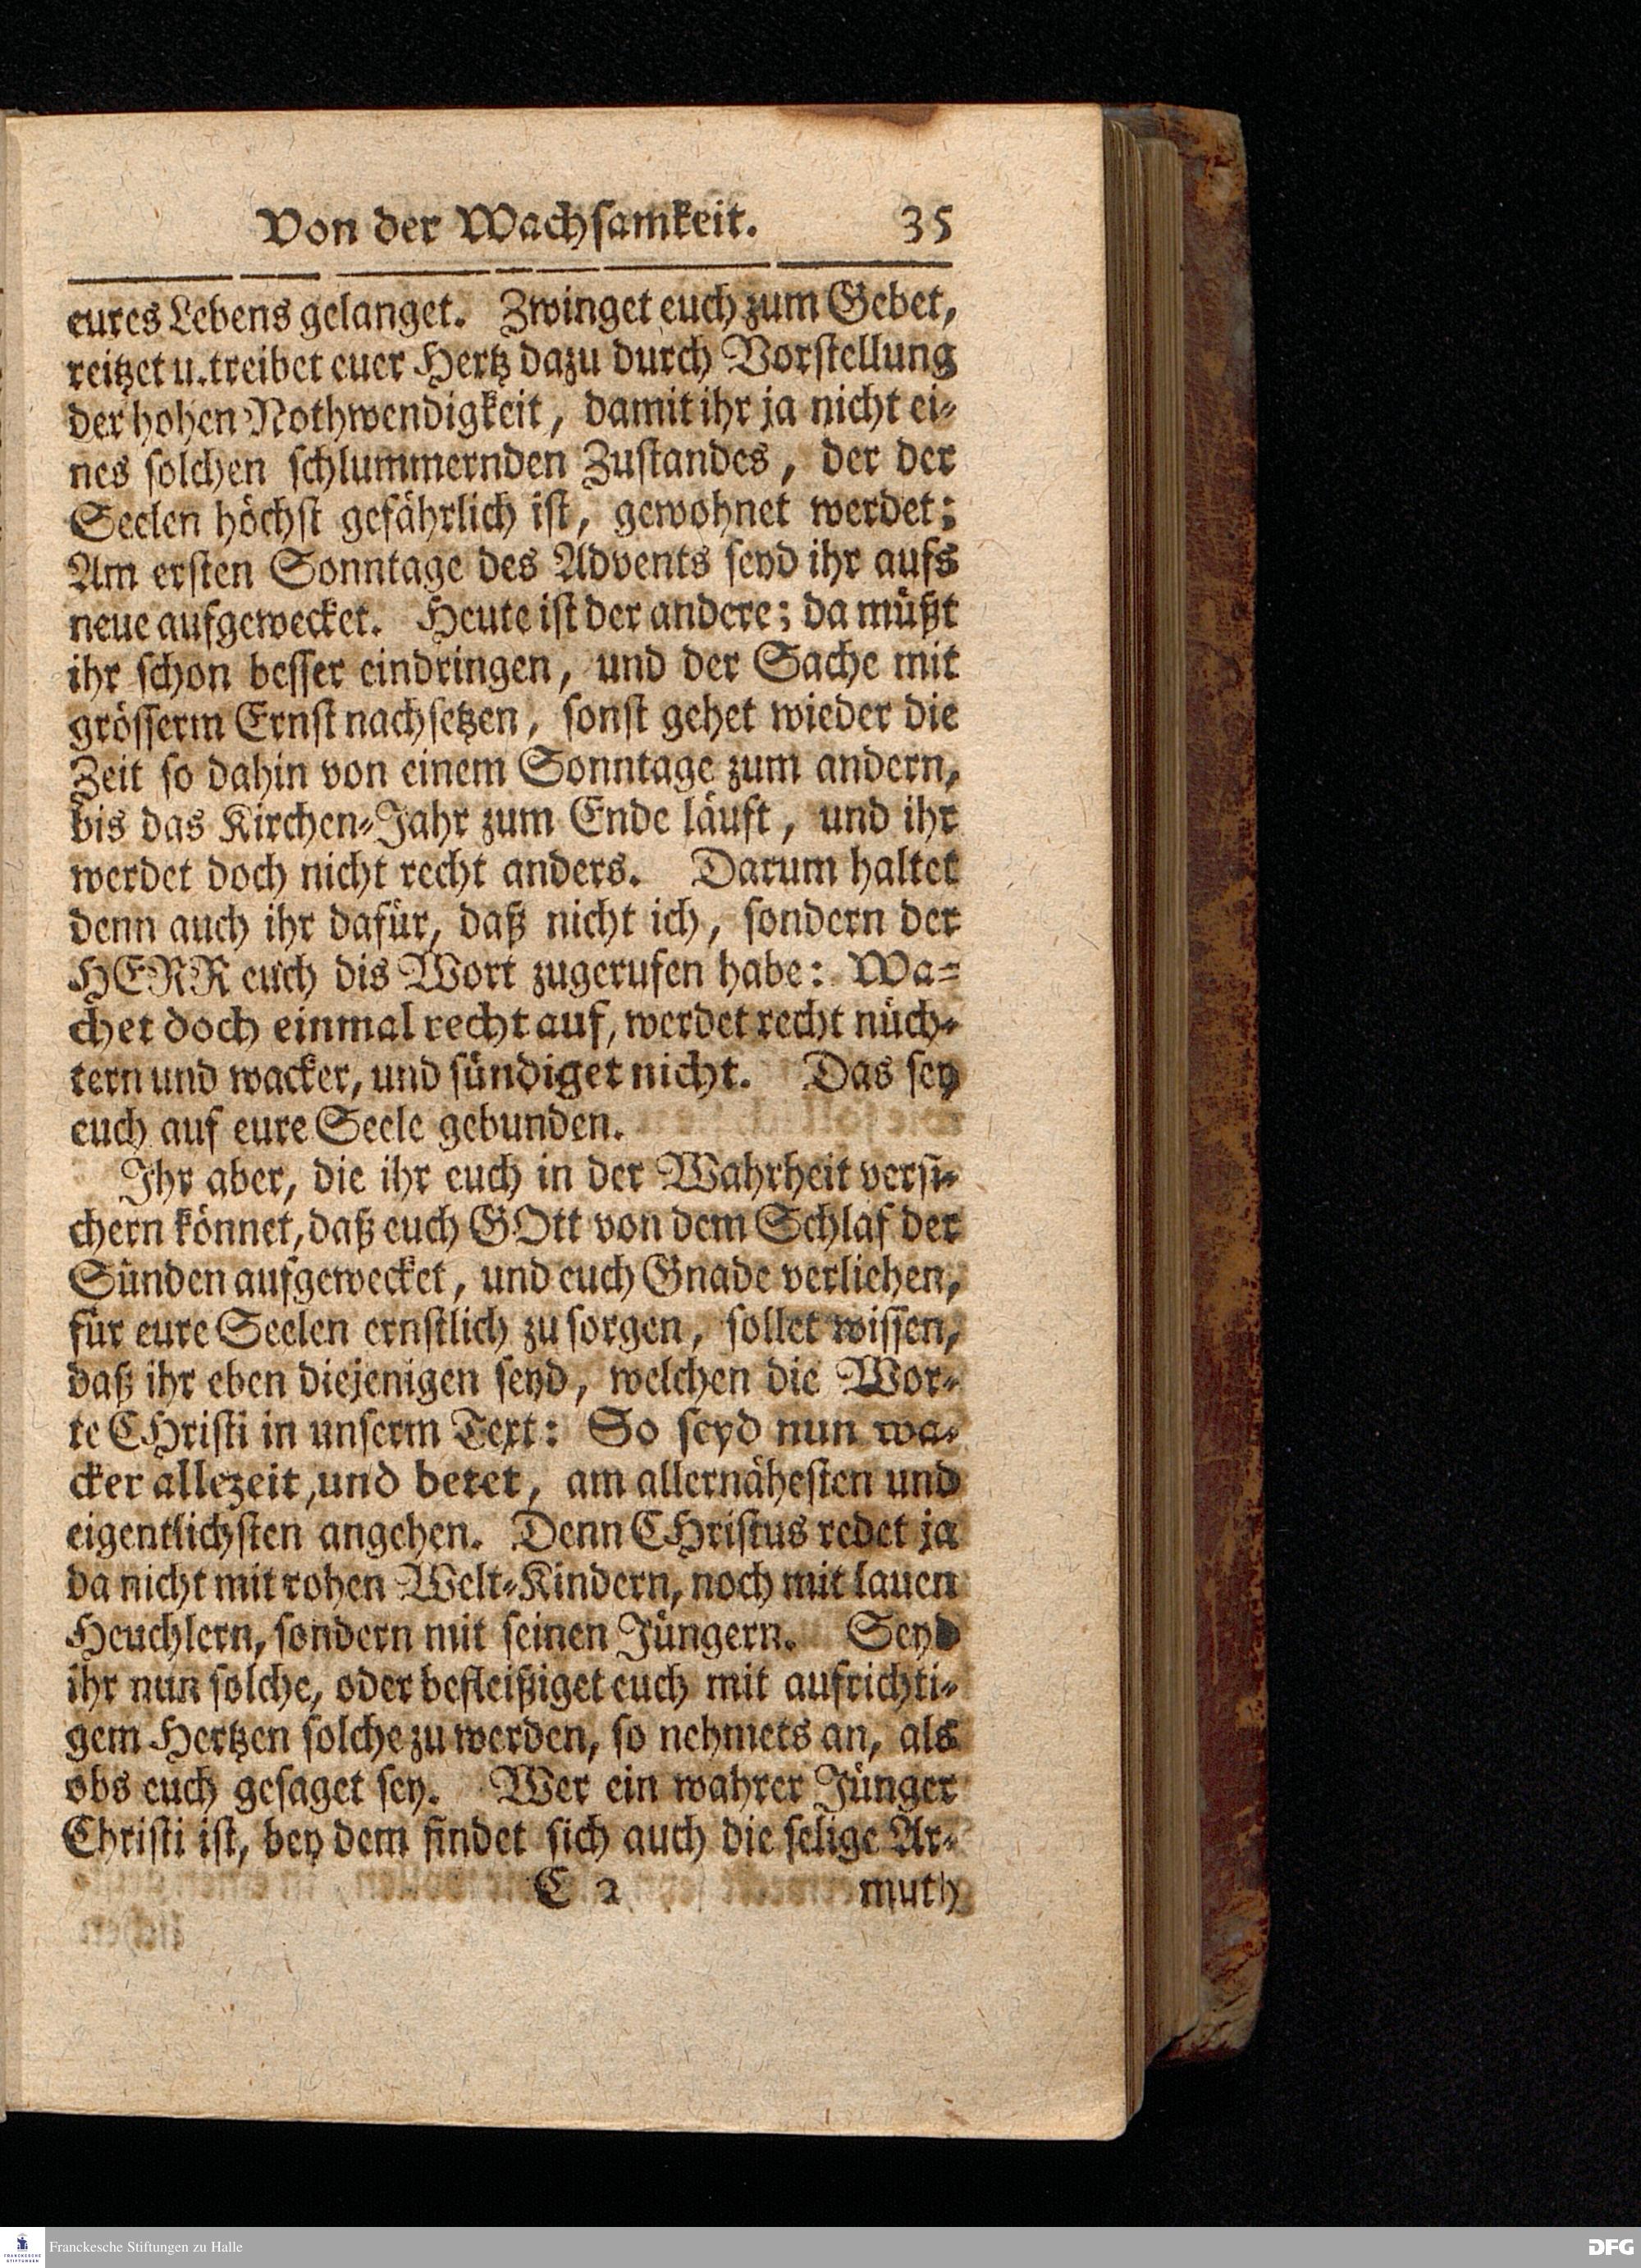 Von der Wachsamkeit. 35
eures Lebens gelanget. Zwinget euch zum Gebet,
reitzet u. treibet euer Hertz dazu durch Vorstellung
der hohen Nothwendigkeit, damit ihr ja nicht ei-
nes solchen schlummernden Zustandes, der der
Seelen höchst gefährlich ist, gewohnet werdet;
Am ersten Sonntage des Advents seyd ihr aufs
neue aufgewecket. Heute ist der andere; da müßt
ihr schon besser eindringen, und der Sache mit
grösserm Ernst nachsetzen, sonst gehet wieder die
Zeit so dahin von einem Sonntage zum andern,
bis das Kirchen-Jahr zum Ende läuft, und ihr
werdet doch nicht recht anders. Darum haltet
denn auch ihr dafür, daß nicht ich, sondern der
HERR euch dis Wort zugerufen habe: Wa-
chet doch einmal recht auf, werdet recht nüch-
tern und wacker, und sündiget nicht. Das sey
euch auf eure Seele gebunden.
Ihr aber, die ihr euch in der Wahrheit versi-
chern könnet, daß euch GOtt von dem Schlaf der
Sünden aufgewecket, und euch Gnade verliehen,
für eure Seelen ernstlich zu sorgen, sollet wissen,
daß ihr eben diejenigen seyd, welchen die Wor-
te CHristi in unserm Text: So seyd nun wa-
cker allezeit, und betet, am allernähesten und
eigentlichsten angehen. Denn CHristus redet ja
da nicht mit rohen Welt-Kindern, noch mit lauen
Heuchlern, sondern mit seinen Jüngern. Seyd
ihr nun solche, oder befleißiget euch mit aufrichti-
gem Hertzen solche zu werden, so nehmets an, als
obs euch gesaget sey. Wer ein wahrer Jünger
Christi ist, bey dem findet sich auch die selige Ar-
C 2 muth
FRANCKESCHE STIFTUNGEN
Franckesche Stiftungen zu Halle
DFG